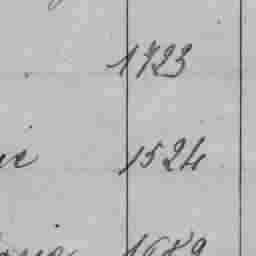 1723
1524
1689